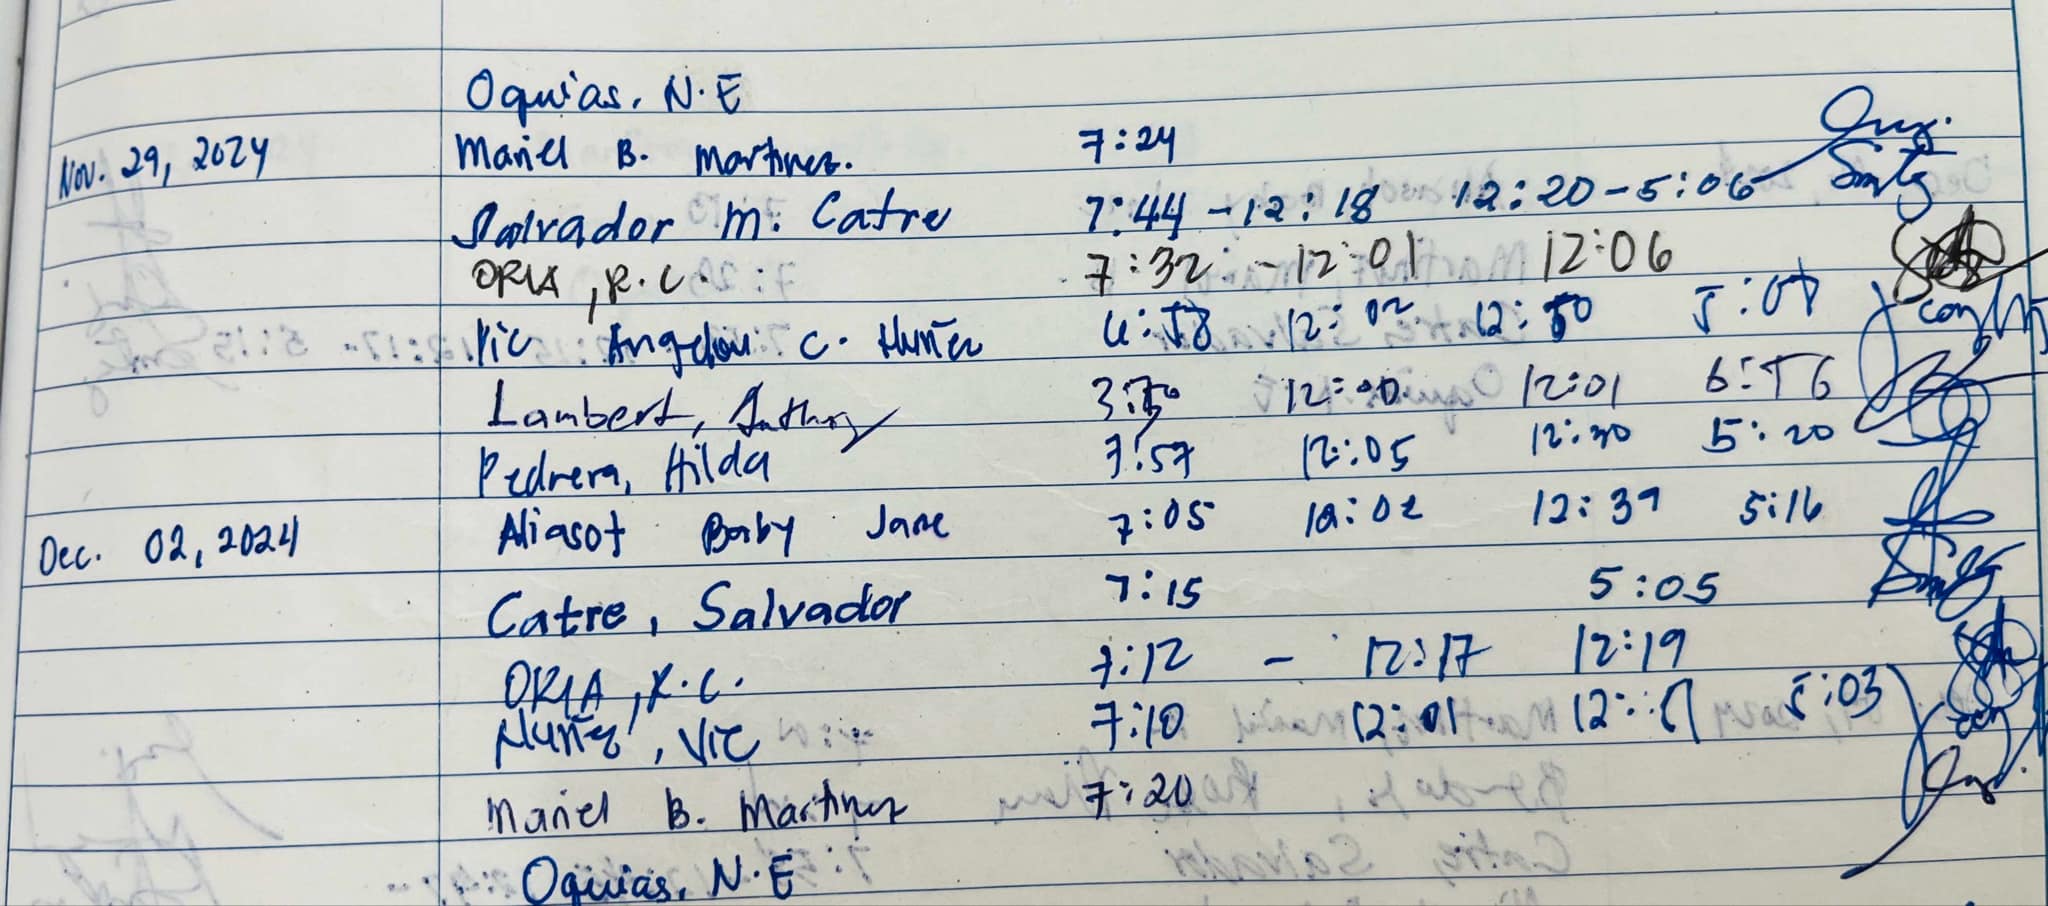 Oquias, N.E
Nov. 29, 2024 Mariel B. Martinez. 7:24
Salvador M. Catre 7:44 - 12:18 12:20 - 5:06
ORIA, R.C. 7:32 - 12:01 12:06
Vic Angelou C. Nuñez 6:58 12:02 12:50 5:07
Lambert, Anthony 12:00 12:01
Pedrera, Hilda 7:57 12:05 12:30 5:20
Dec. 02, 2024 Aliasot Baby Jane 7:05 12:02 12:39 5:16
Catre, Salvador 7:15 5:05
ORIA, R.C. 7:12 - 12:17 12:19
Nuñez, Vic 7:10 12:01 5:03
Mariel B. Martinez 7:20
Oquias, N.E